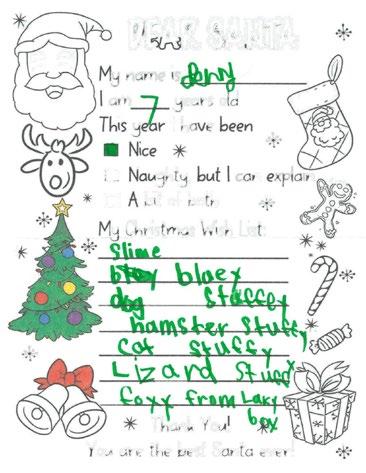 DEAR SANTA
My name is
I am 7 years old
This year I have been
Nice
Naughty, but I can explain
A bit of both
My Christmas Wish List:
Slime
bluey
dog Stuffey
hamster Stuffy
cat stuffy
Lizard Stuffy
foxy from Laky
box
Thank You!
You are the best Santa ever!